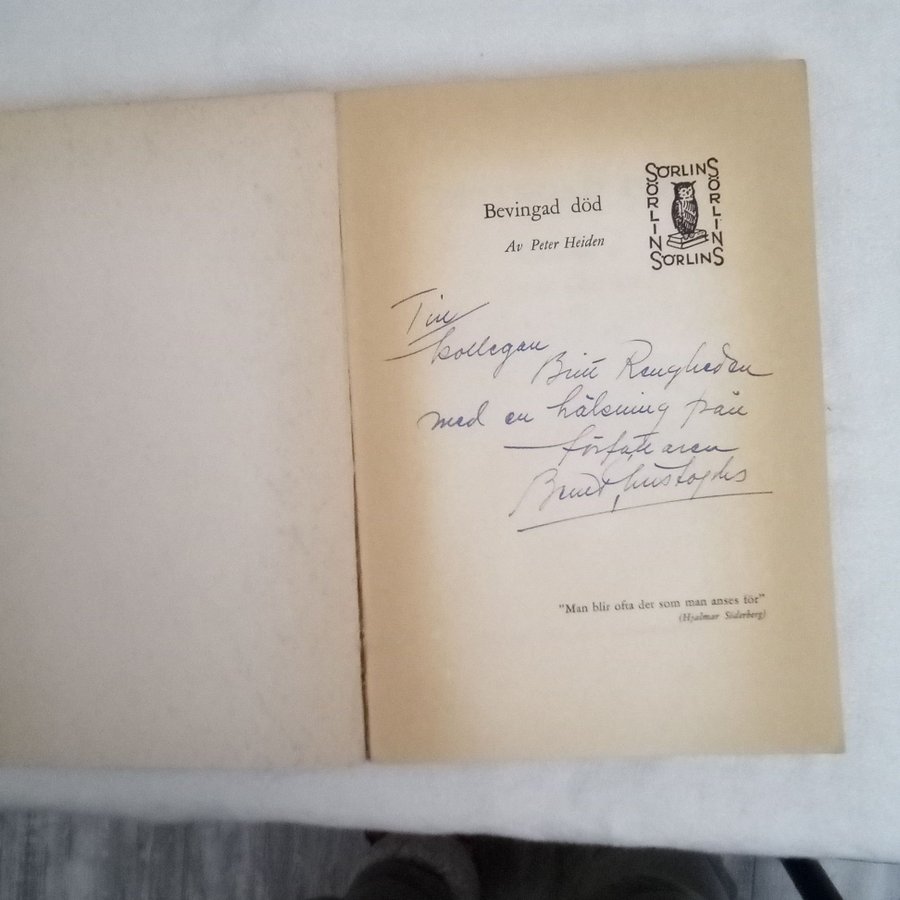 Bevingad död
Av Peter Heiden
SÖRLINS
SÖRLINS
SÖRLINS
SÖRLINS
Till
kollegan
Britt Rengheden
med en hälsning från
författaren
Bernt Christophs
"Man blir ofta det som man anses för"
(Hjalmar Söderberg)